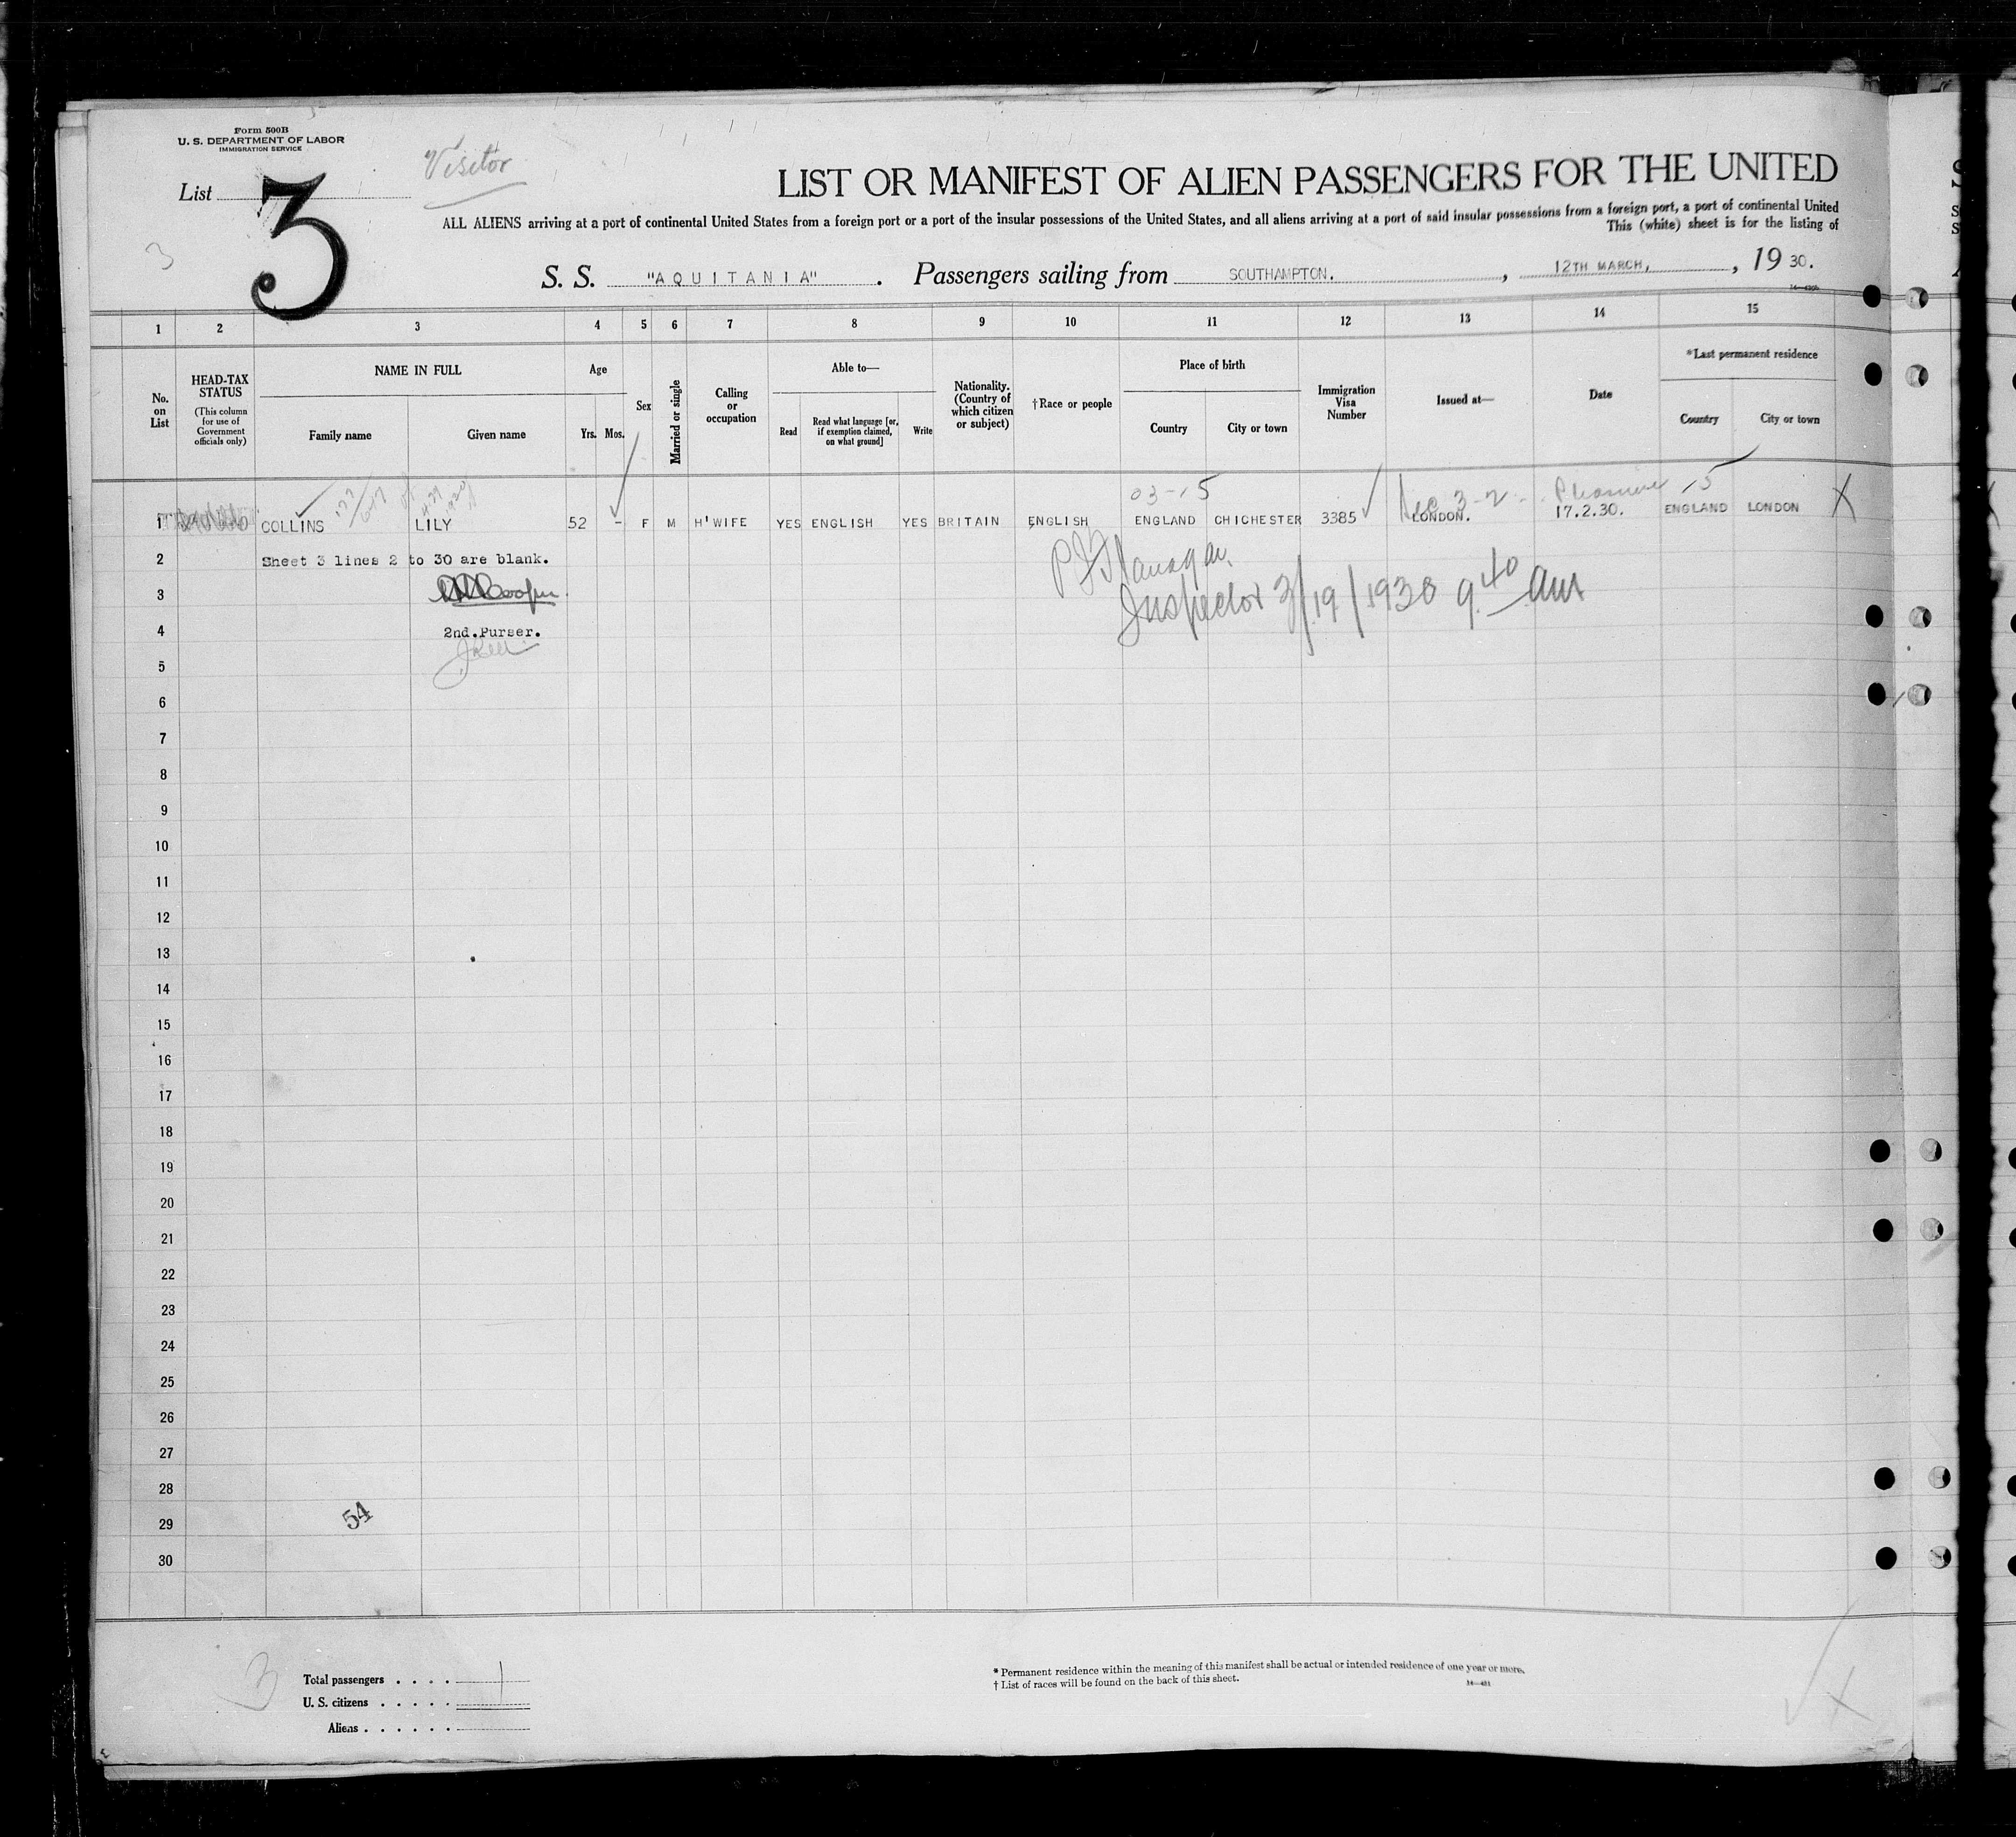 Form 500B
U. S. DEPARTMENT OF LABOR
IMMIGRATION SERVICE
Visitor
List 3
3
LIST OR MANIFEST OF ALIEN PASSENGERS FOR THE UNITED
ALL ALIENS arriving at a port of continental United States from a foreign port or a port of the insular possessions of the United States, and all aliens arriving at a port of said insular possessions from a foreign port, a port of continental United
This (white) sheet is for the listing of
S. S. "AQUITANIA". Passengers sailing from SOUTHAMPTON. , 12TH MARCH, , 19 30.
1 2 3 4 5 6 7 8 9 10 11 12 13 14 15
No. on List
HEAD-TAX STATUS (This column for use of Government officials only)
NAME IN FULL
Family name Given name
Age
Yrs. Mos.
Sex
Married or single
Calling or occupation
Able to—
Read Read what language [or, if exemption claimed, on what ground] Write
Nationality. (Country of which citizen or subject)
†Race or people
Place of birth
Country City or town
Immigration Visa Number
Issued at—
Date
*Last permanent residence
Country City or town
03-15 3-2 Pleasure 15
1 COLLINS LILY 52 - F M H'WIFE YES ENGLISH YES BRITAIN ENGLISH ENGLAND CHICHESTER 3385 LONDON. 17.2.30. ENGLAND LONDON X
2 Sheet 3 lines 2 to 30 are blank.
P J Flanagan
3 Inspector 3/19/1930 9.40 am
4 2nd.Purser.
5
6
7
8
9
10
11
12
13
14
15
16
17
18
19
20
21
22
23
24
25
26
27
28
29
30
54
3
Total passengers . . . . 1
U. S. citizens . . . . .
Aliens . . . . . .
* Permanent residence within the meaning of this manifest shall be actual or intended residence of one year or more.
† List of races will be found on the back of this sheet.
X